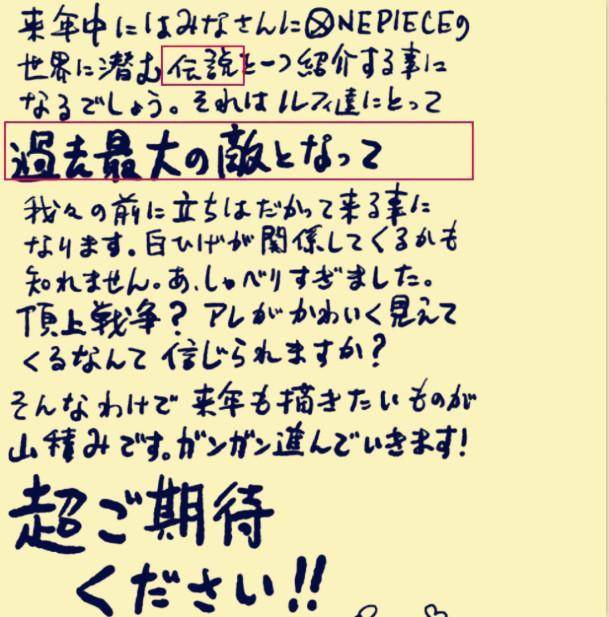 来年中にはみなさんにONEPIECEの
世界に潜む伝説を一つ紹介する事に
なるでしょう。それはルフィ達にとって
過去最大の敵となって
我々の前に立ちはだかって来る事に
なります。白ひげが関係してくるかも
知れません。あ、しゃべりすぎました。
頂上戦争？アレがかわいく見えて
くるなんて信じられますか？
そんなわけで来年も描きたいものが
山積みです。ガンガン進んでいきます！
超ご期待
ください！！